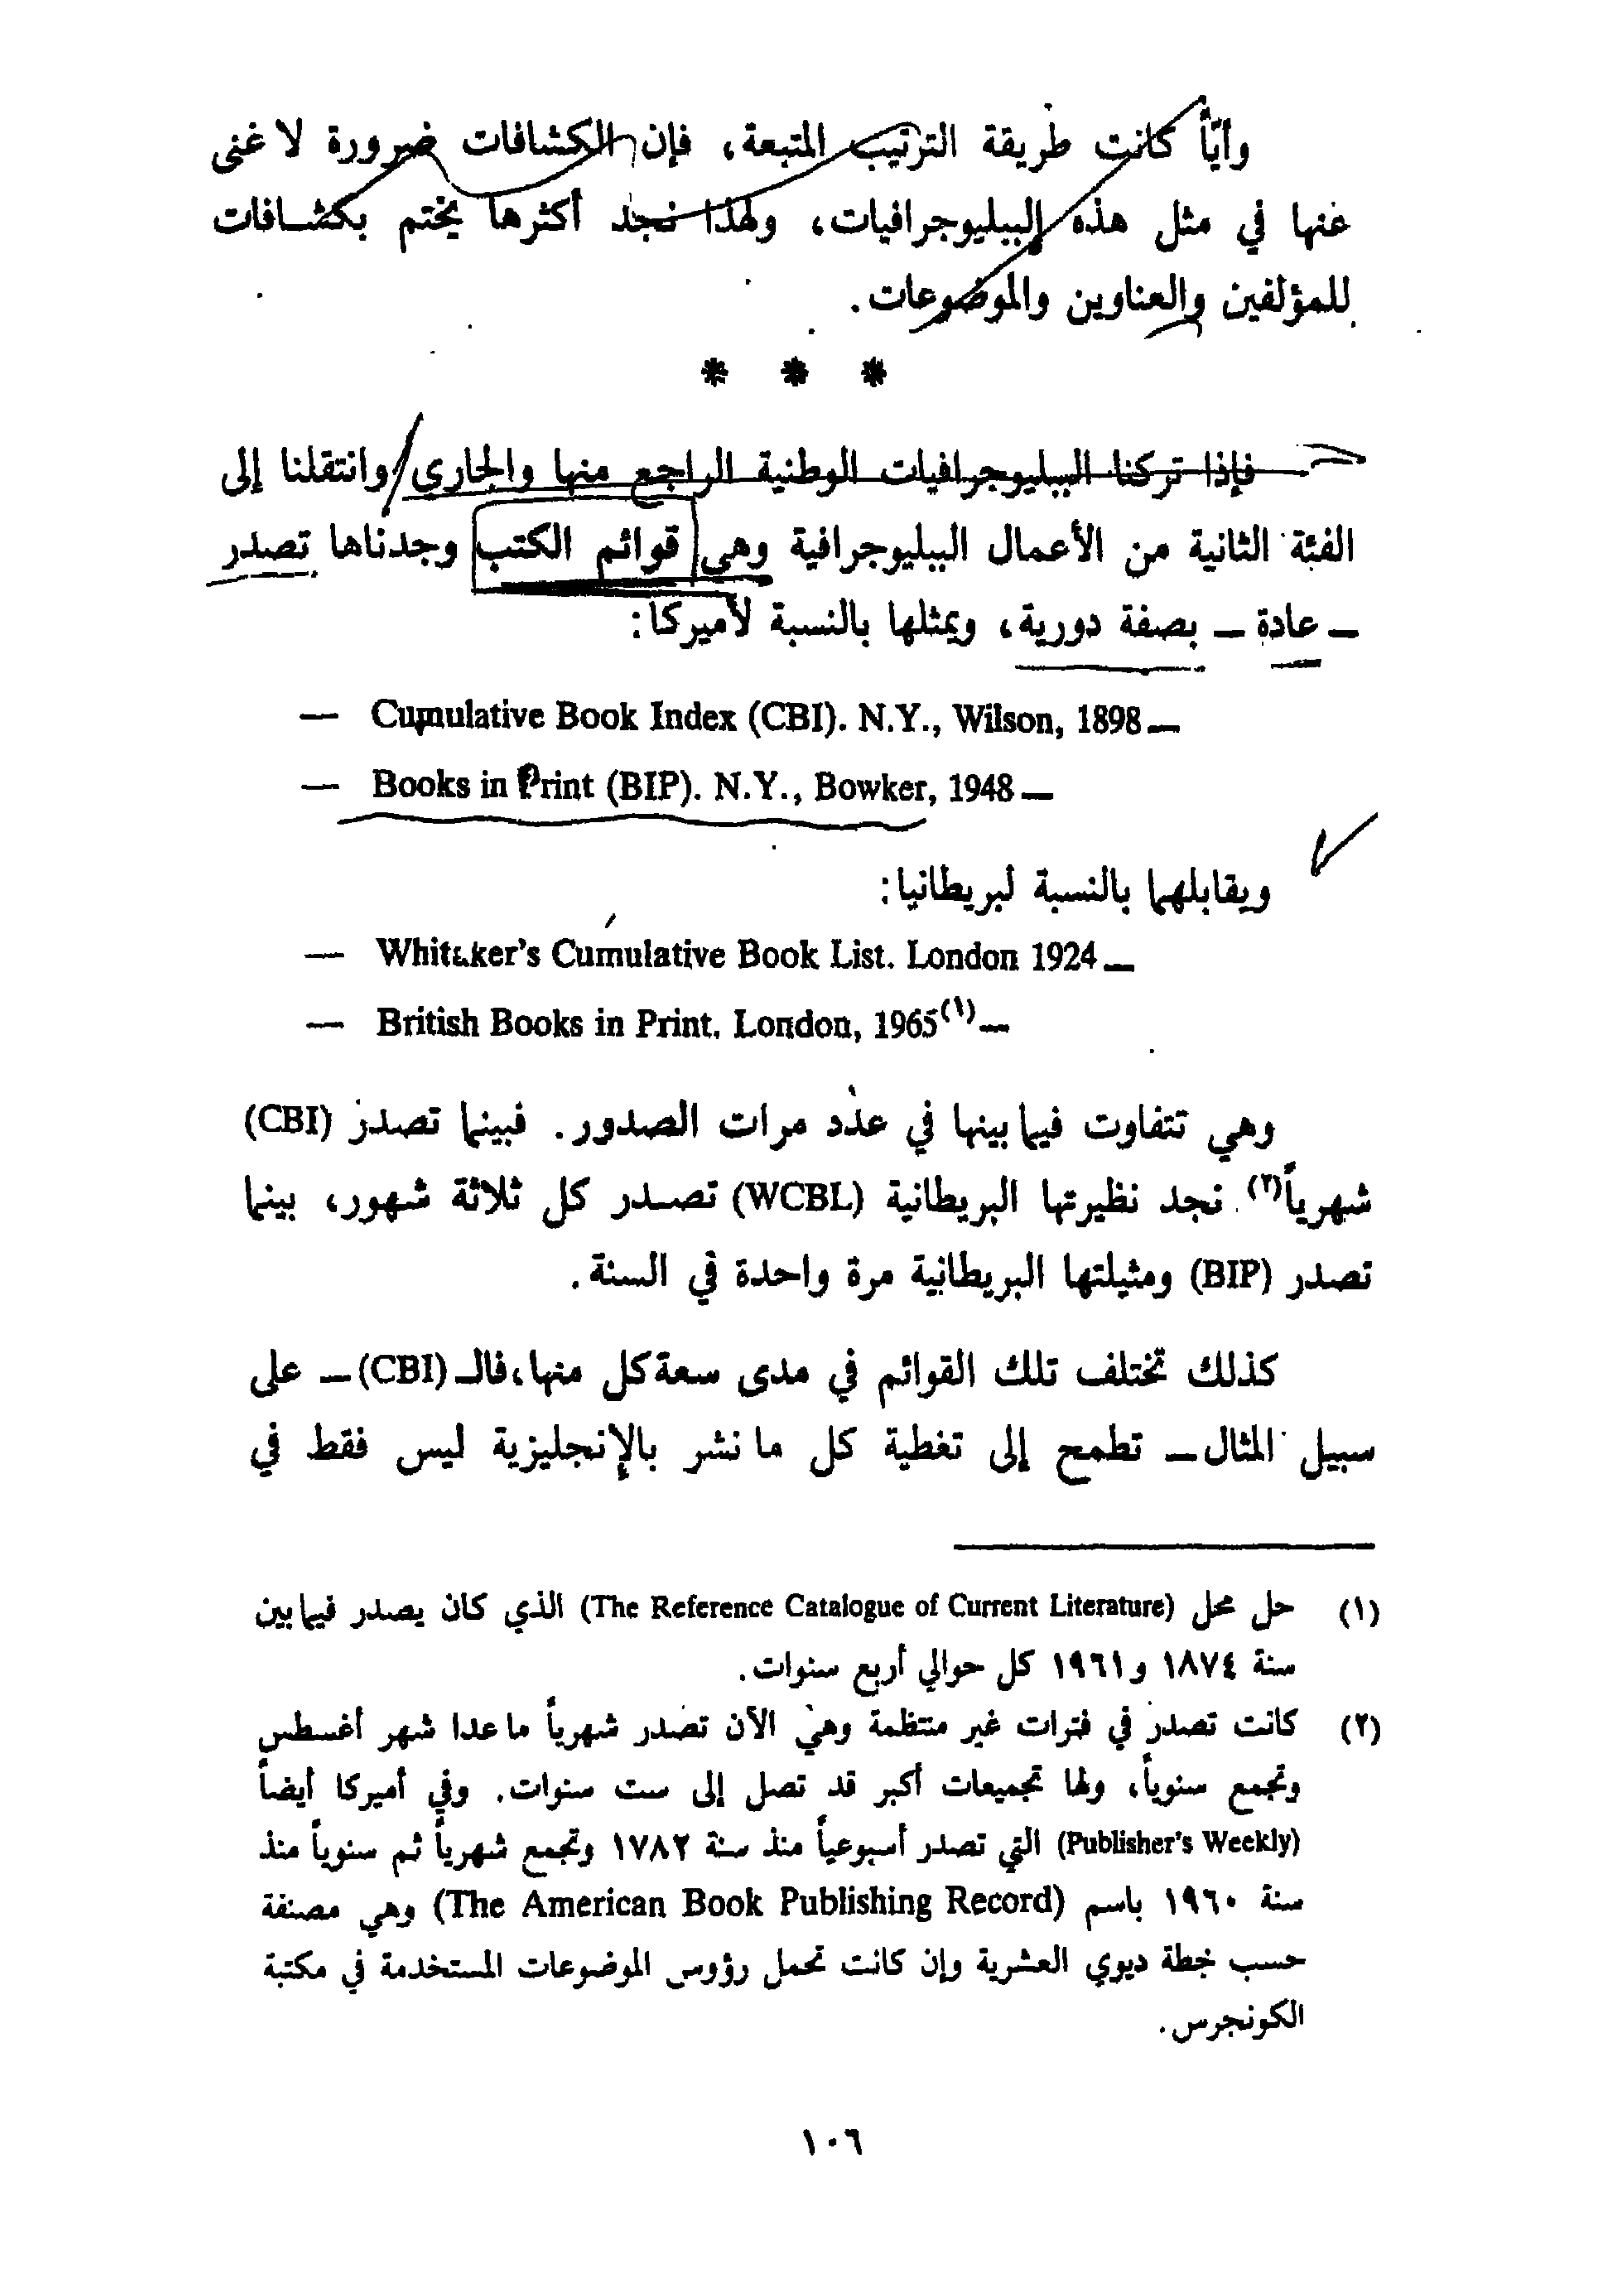 وأيّاً كانت طريقة الترتيب المتبعة، فإن الكشافات ضرورة لا غنى
عنها في مثل هذه الببليوجرافيات، ولهذا نجد أكثرها يختم بكشافات
للمؤلفين والعناوين والموضوعات.
* * *
فإذا تركنا الببليوجرافيات الوطنية الراجع منها والجاري وانتقلنا إلى
الفئة الثانية من الأعمال الببليوجرافية وهي قوائم الكتب وجدناها تصدر
ــ عادة ــ بصفة دورية، ويمثلها بالنسبة لأميركا:
— Cumulative Book Index (CBI). N.Y., Wilson, 1898—
— Books in Print (BIP). N.Y., Bowker, 1948—
ويقابلهما بالنسبة لبريطانيا:
— Whitaker's Cumulative Book List. London 1924—
— British Books in Print. London, 1965(١)—
وهي تتفاوت فيما بينها في عدد مرات الصدور. فبينما تصدر (CBI)
شهرياً(٢) نجد نظيرتها البريطانية (WCBL) تصدر كل ثلاثة شهور، بينما
تصدر (BIP) ومثيلتها البريطانية مرة واحدة في السنة.
كذلك تختلف تلك القوائم في مدى سعة كل منها، فالـ (CBI) ــ على
سبيل المثال ــ تطمح إلى تغطية كل ما نشر بالإنجليزية ليس فقط في
(١) حل محل (The Reference Catalogue of Current Literature) الذي كان يصدر فيما بين
سنة ١٨٧٤ و١٩٦١ كل حوالي أربع سنوات.
(٢) كانت تصدر في فترات غير منتظمة وهي الآن تصدر شهرياً ما عدا شهر أغسطس
وتجمع سنوياً، ولها تجميعات أكبر قد تصل إلى ست سنوات. وفي أميركا أيضاً
(Publisher's Weekly) التي تصدر أسبوعياً منذ سنة ١٧٨٢ وتجمع شهرياً ثم سنوياً منذ
سنة ١٩٦٠ باسم (The American Book Publishing Record) وهي مصنفة
حسب خطة ديوي العشرية وإن كانت تحمل رؤوس الموضوعات المستخدمة في مكتبة
الكونجرس.
١٠٦